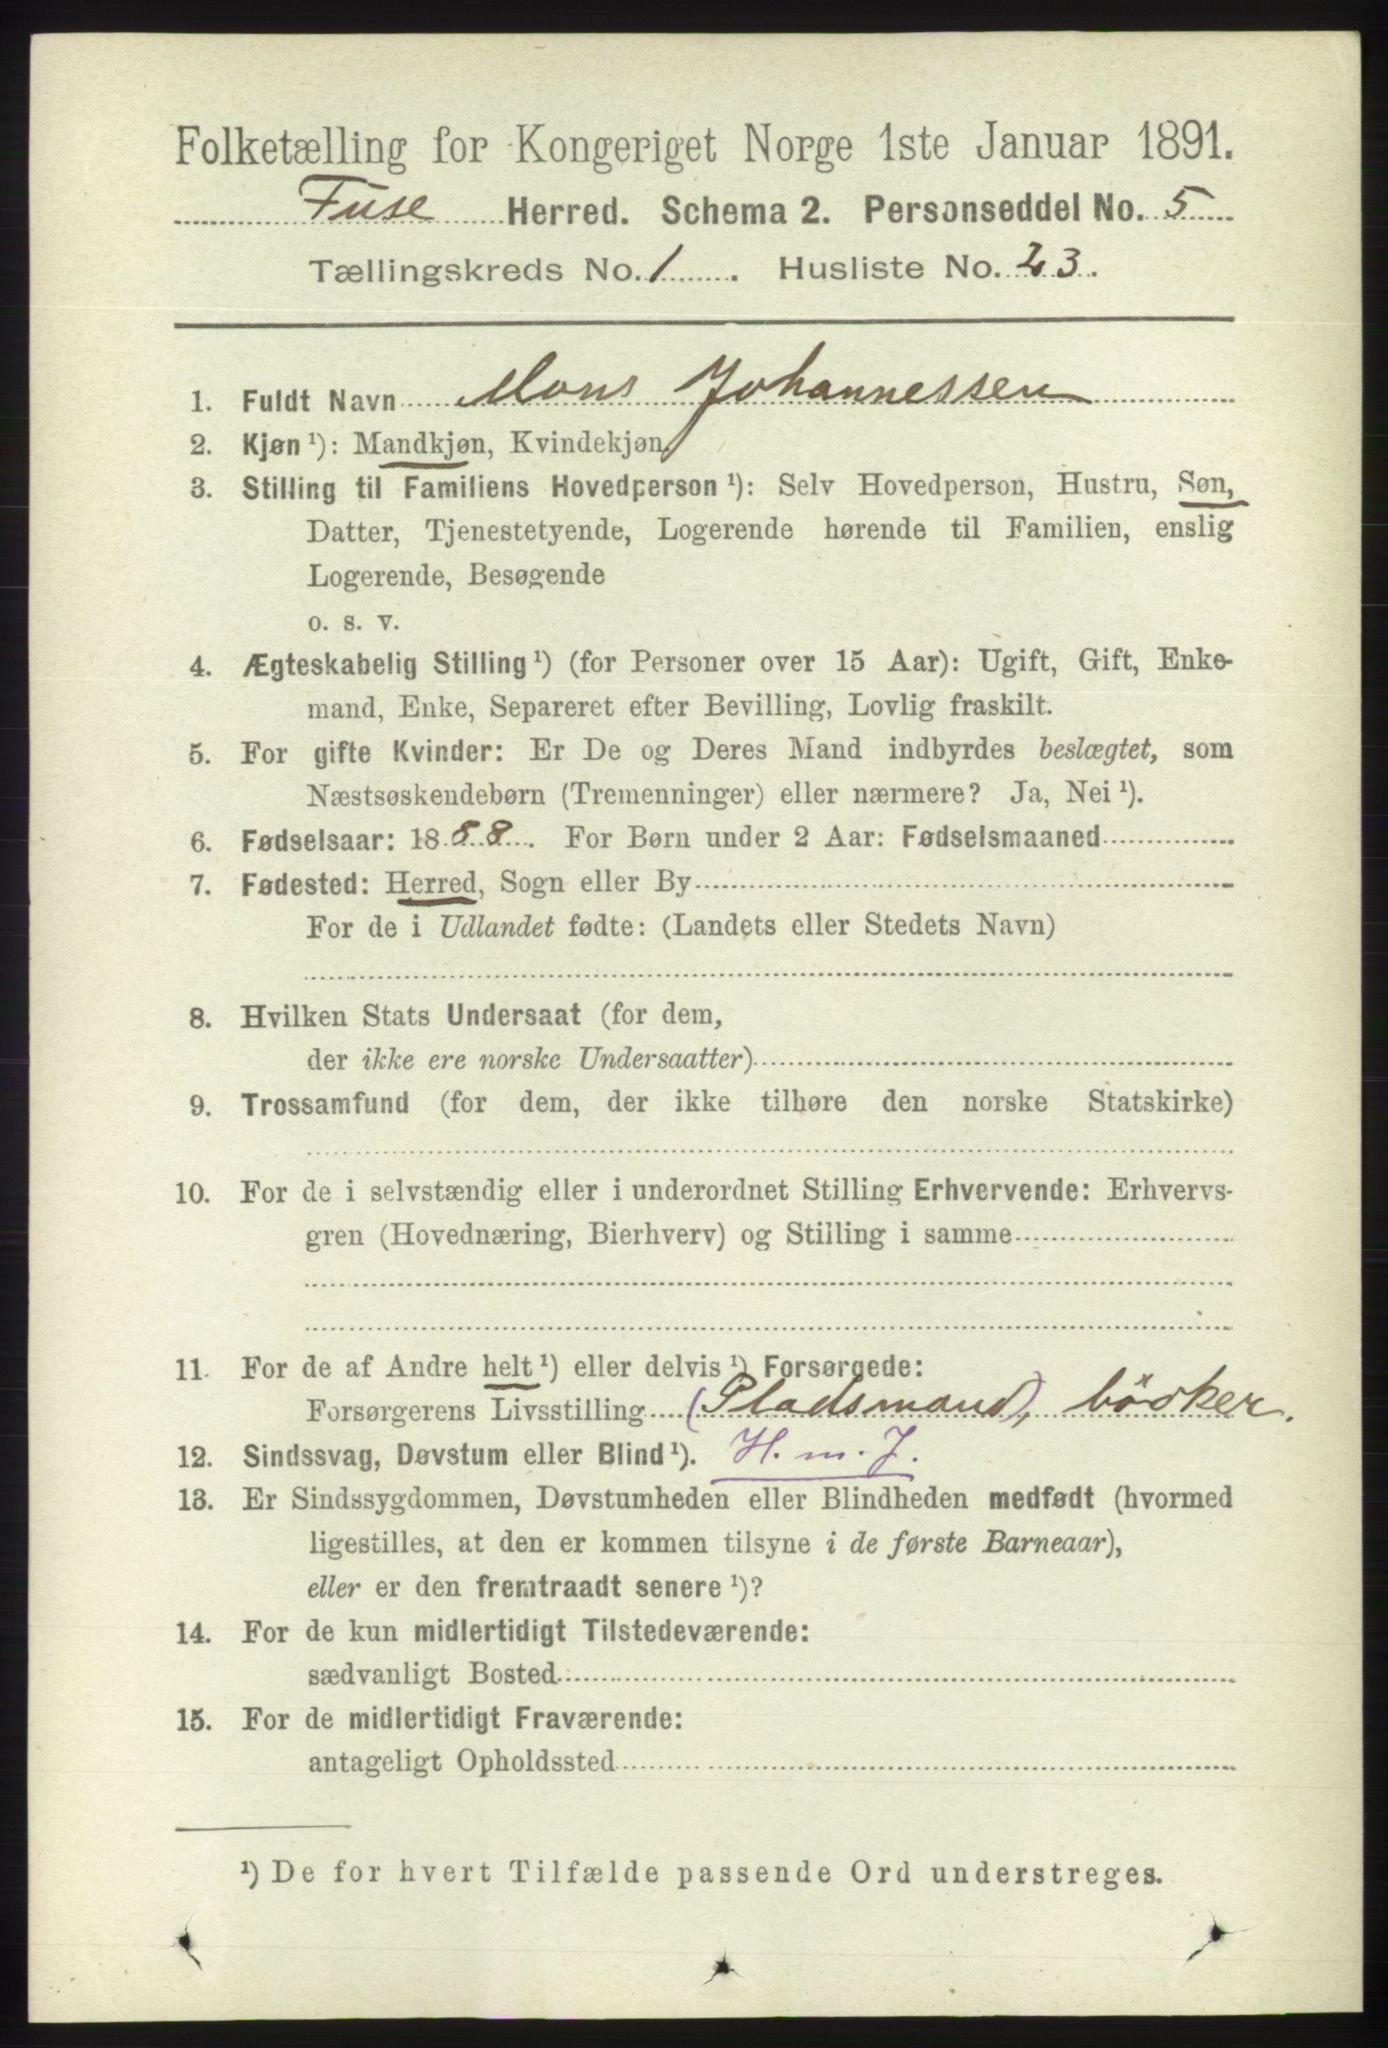 Folketælling for Kongeriget Norge 1ste Januar 1891.
Fuse Herred. Schema 2. Personseddel No. 5
Tællingskreds No. 1. Husliste No. 23.
1. Fuldt Navn Mons Johannessen
2. Kjøn ¹): Mandkjøn, Kvindekjøn
3. Stilling til Familiens Hovedperson ¹): Selv Hovedperson, Hustru, Søn,
Datter, Tjenestetyende, Logerende hørende til Familien, enslig
Logerende, Besøgende
o. s. v.
4. Ægteskabelig Stilling ¹) (for Personer over 15 Aar): Ugift, Gift, Enke-
mand, Enke, Separeret efter Bevilling, Lovlig fraskilt.
5. For gifte Kvinder: Er De og Deres Mand indbyrdes beslægtet, som
Næstsøskendebørn (Tremenninger) eller nærmere? Ja, Nei ¹).
6. Fødselsaar: 1888. For Børn under 2 Aar: Fødselsmaaned
7. Fødested: Herred, Sogn eller By
For de i Udlandet fødte: (Landets eller Stedets Navn)
8. Hvilken Stats Undersaat (for dem,
der ikke ere norske Undersaatter)
9. Trossamfund (for dem, der ikke tilhøre den norske Statskirke)
10. For de i selvstændig eller i underordnet Stilling Erhvervende: Erhvervs-
gren (Hovednæring, Bierhverv) og Stilling i samme
11. For de af Andre helt ¹) eller delvis ¹) Forsørgede:
Forsørgerens Livsstilling (Pladsmand), bödker.
12. Sindssvag, Døvstum eller Blind ¹). H. m. J.
13. Er Sindssygdommen, Døvstumheden eller Blindheden medfødt (hvormed
ligestilles, at den er kommen tilsyne i de første Barneaar),
eller er den fremtraadt senere ¹)?
14. For de kun midlertidigt Tilstedeværende:
sædvanligt Bosted
15. For de midlertidigt Fraværende:
antageligt Opholdssted
¹) De for hvert Tilfælde passende Ord understreges.